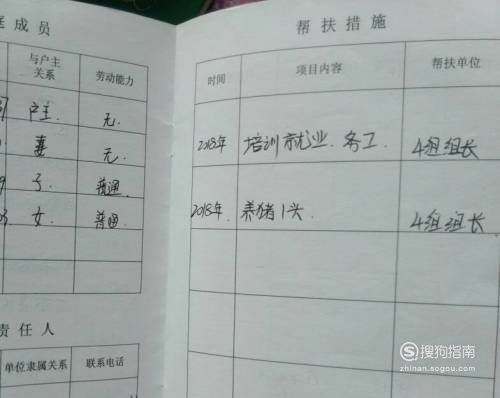 庭成员
与户主
关系
劳动能力
户主.
元.
妻
元.
子.
普通.
女.
普通.
责任人
单位隶属关系
联系电话
帮扶措施
时间
项目内容
帮扶单位
2018年
培训就业、务工.
4组组长
2018年.
养猪1头.
4组组长
搜狗指南
zhinan.sogou.com